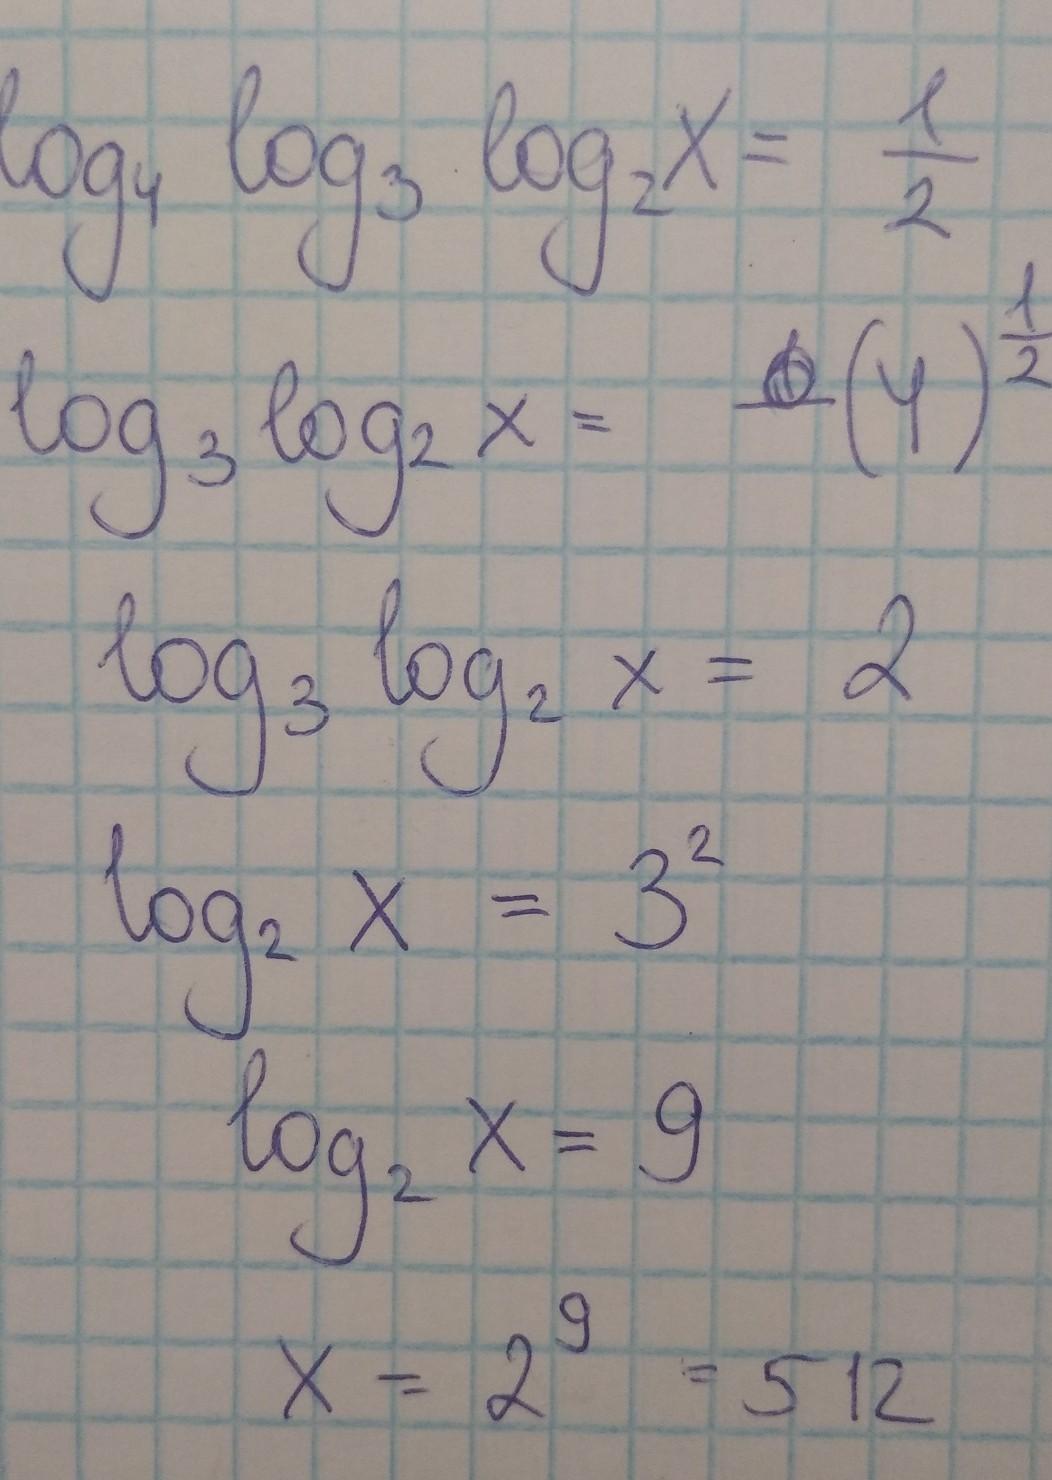 log₄ log₃ log₂ x = 1/2
log₃ log₂ x = (4)^(1/2)
log₃ log₂ x = 2
log₂ x = 3²
log₂ x = 9
x = 2⁹ = 512